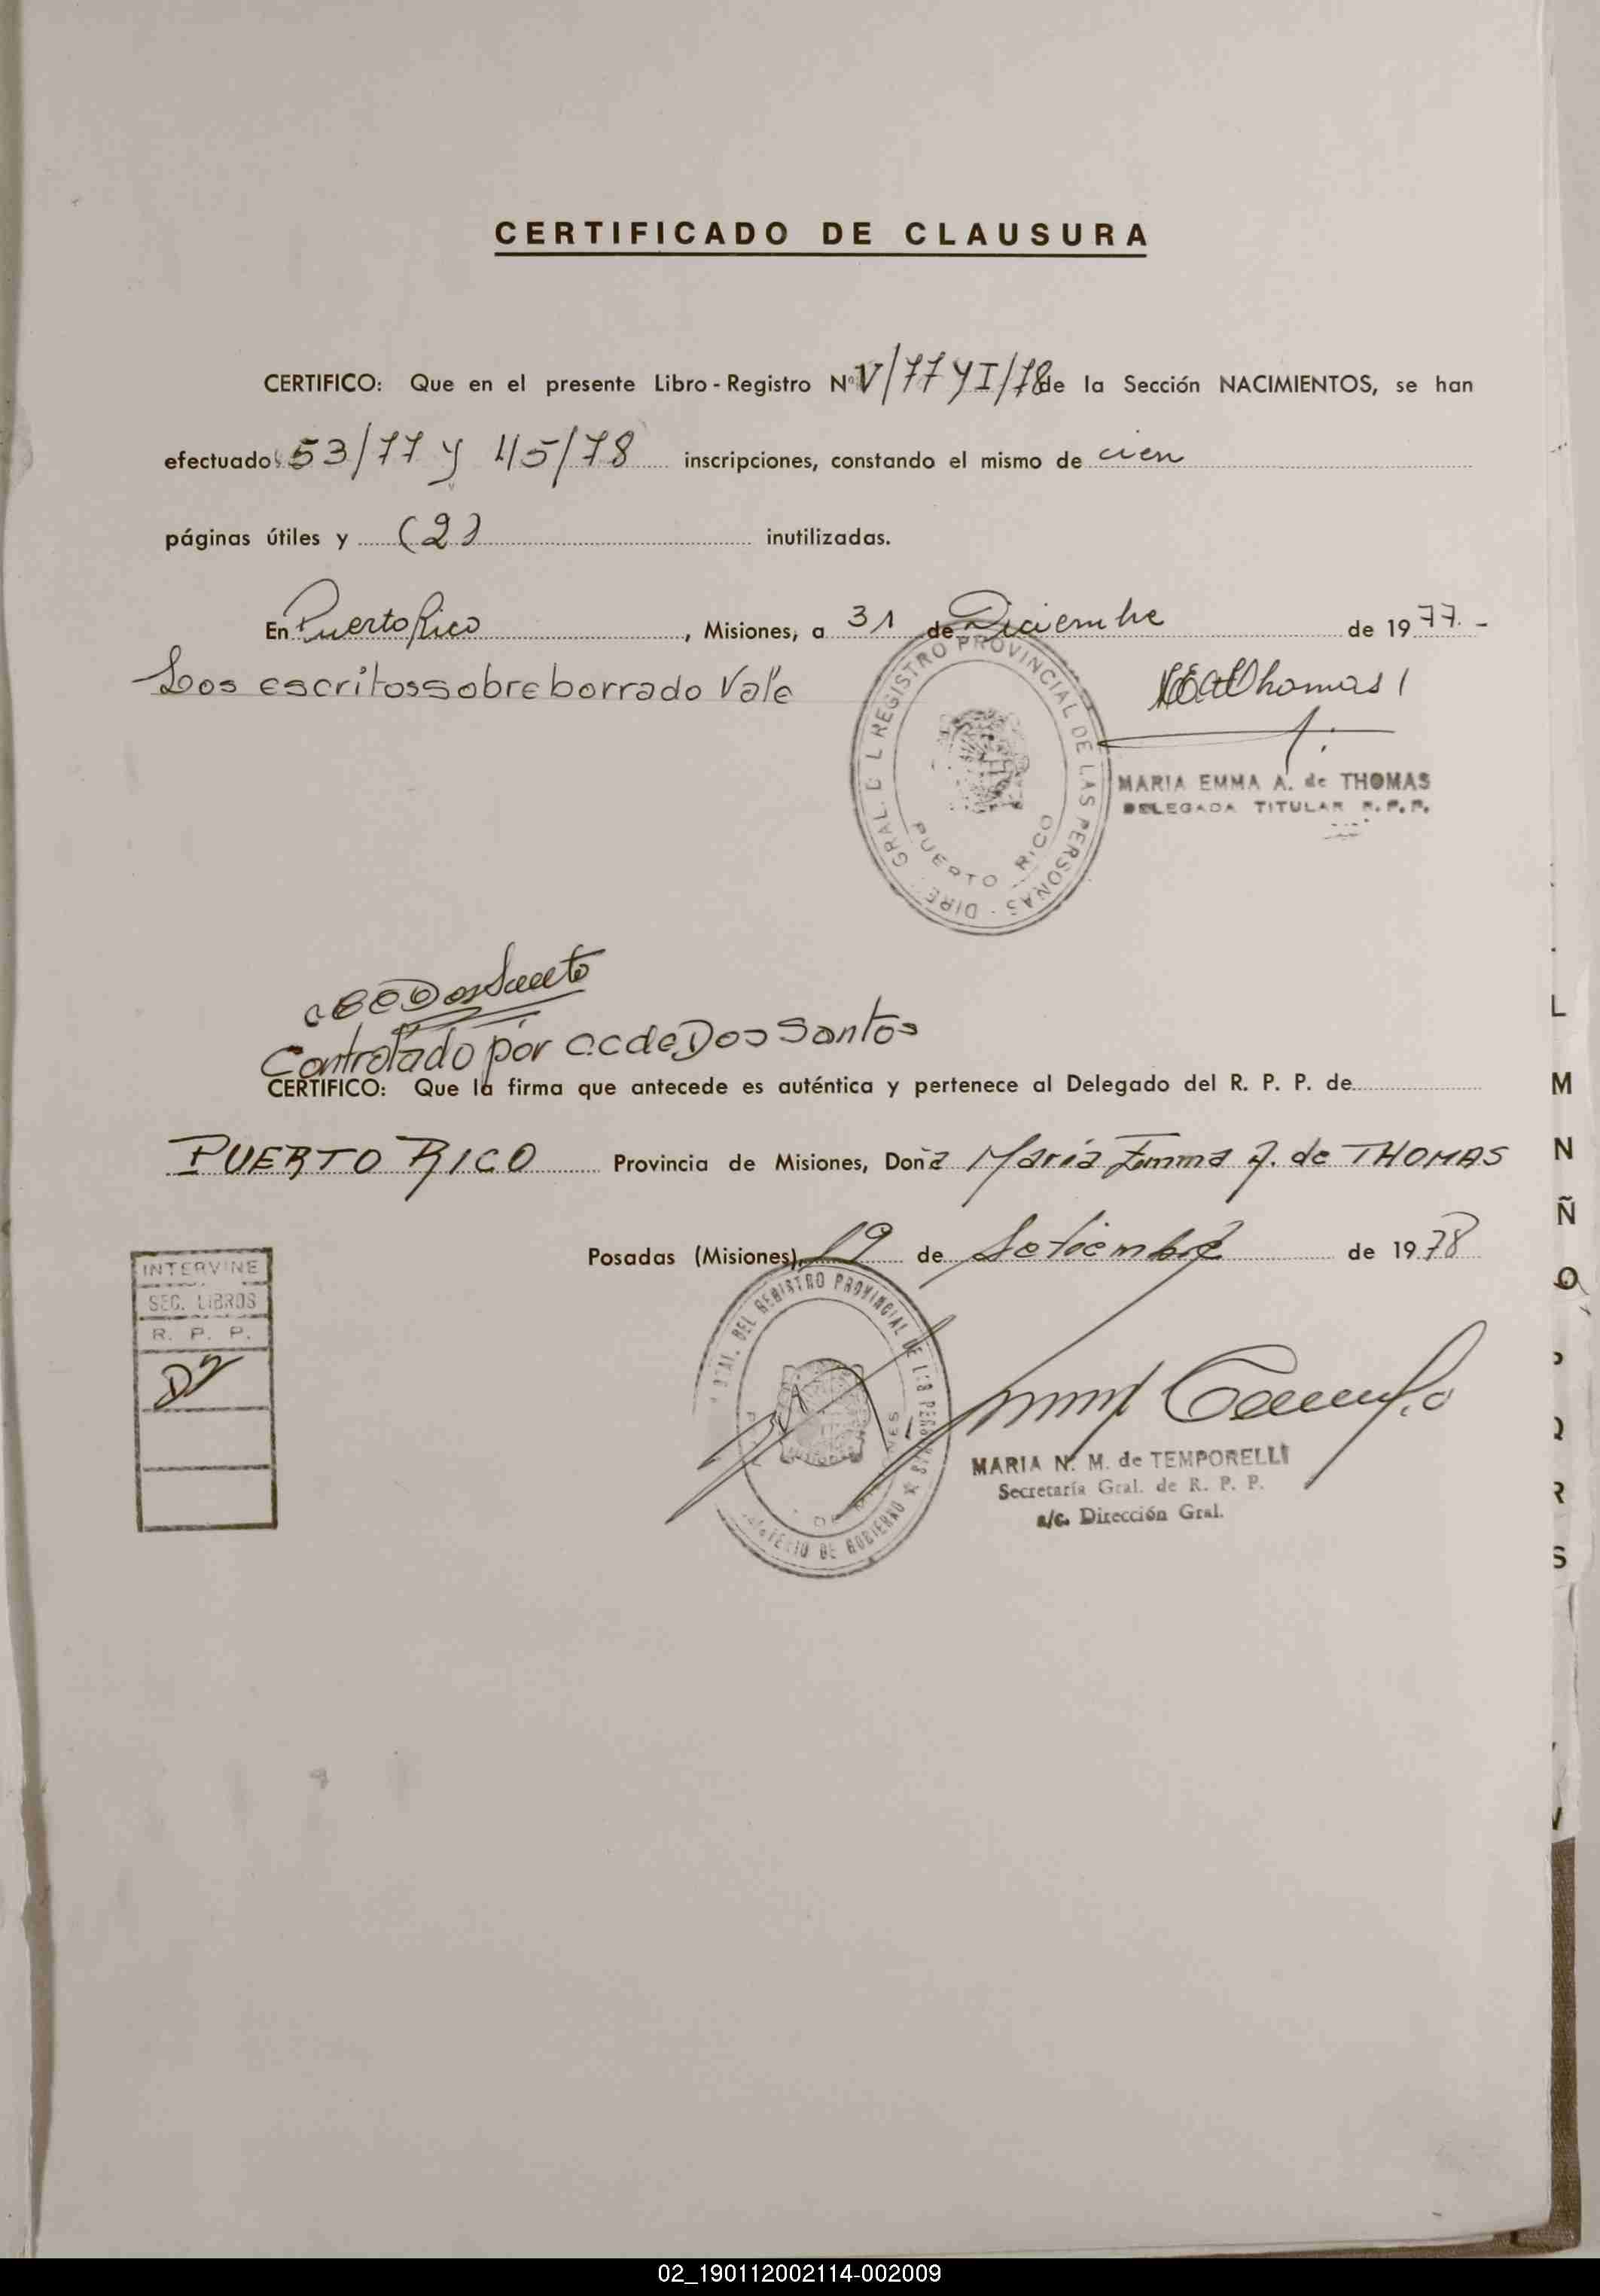 CERTIFICADO DE CLAUSURA
CERTIFICO: Que en el presente Libro - Registro Nº V/77 y I/78 de la Sección NACIMIENTOS, se han
efectuado 53/77 y 45/78 inscripciones, constando el mismo de cien
páginas útiles y (2) inutilizadas.
En Puerto Rico, Misiones, a 31 de Diciembre de 1977.-
Los escritos sobre borrado Vale
MARIA EMMA A. de THOMAS
DELEGADA TITULAR R.P.P.
GRAL. D L REGISTRO PROVINCIAL DE LAS PERSONAS - DIRE
PUERTO RICO
Controlado por de Dos Santos
CERTIFICO: Que la firma que antecede es auténtica y pertenece al Delegado del R. P. P. de
PUERTO RICO Provincia de Misiones, Doña María Emma A. de THOMAS
Posadas (Misiones), 19 de Setiembre de 1978
INTERVINE
SEC. LIBROS
R. P. P.
GRAL. DEL REGISTRO PROVINCIAL DE LAS PERSONAS
MINISTERIO DE GOBIERNO
MARIA N. M. de TEMPORELLI
Secretaría Gral. de R. P. P.
a/c. Dirección Gral.
L
M
N
Ñ
O
P
Q
R
S
V
02_190112002114-002009